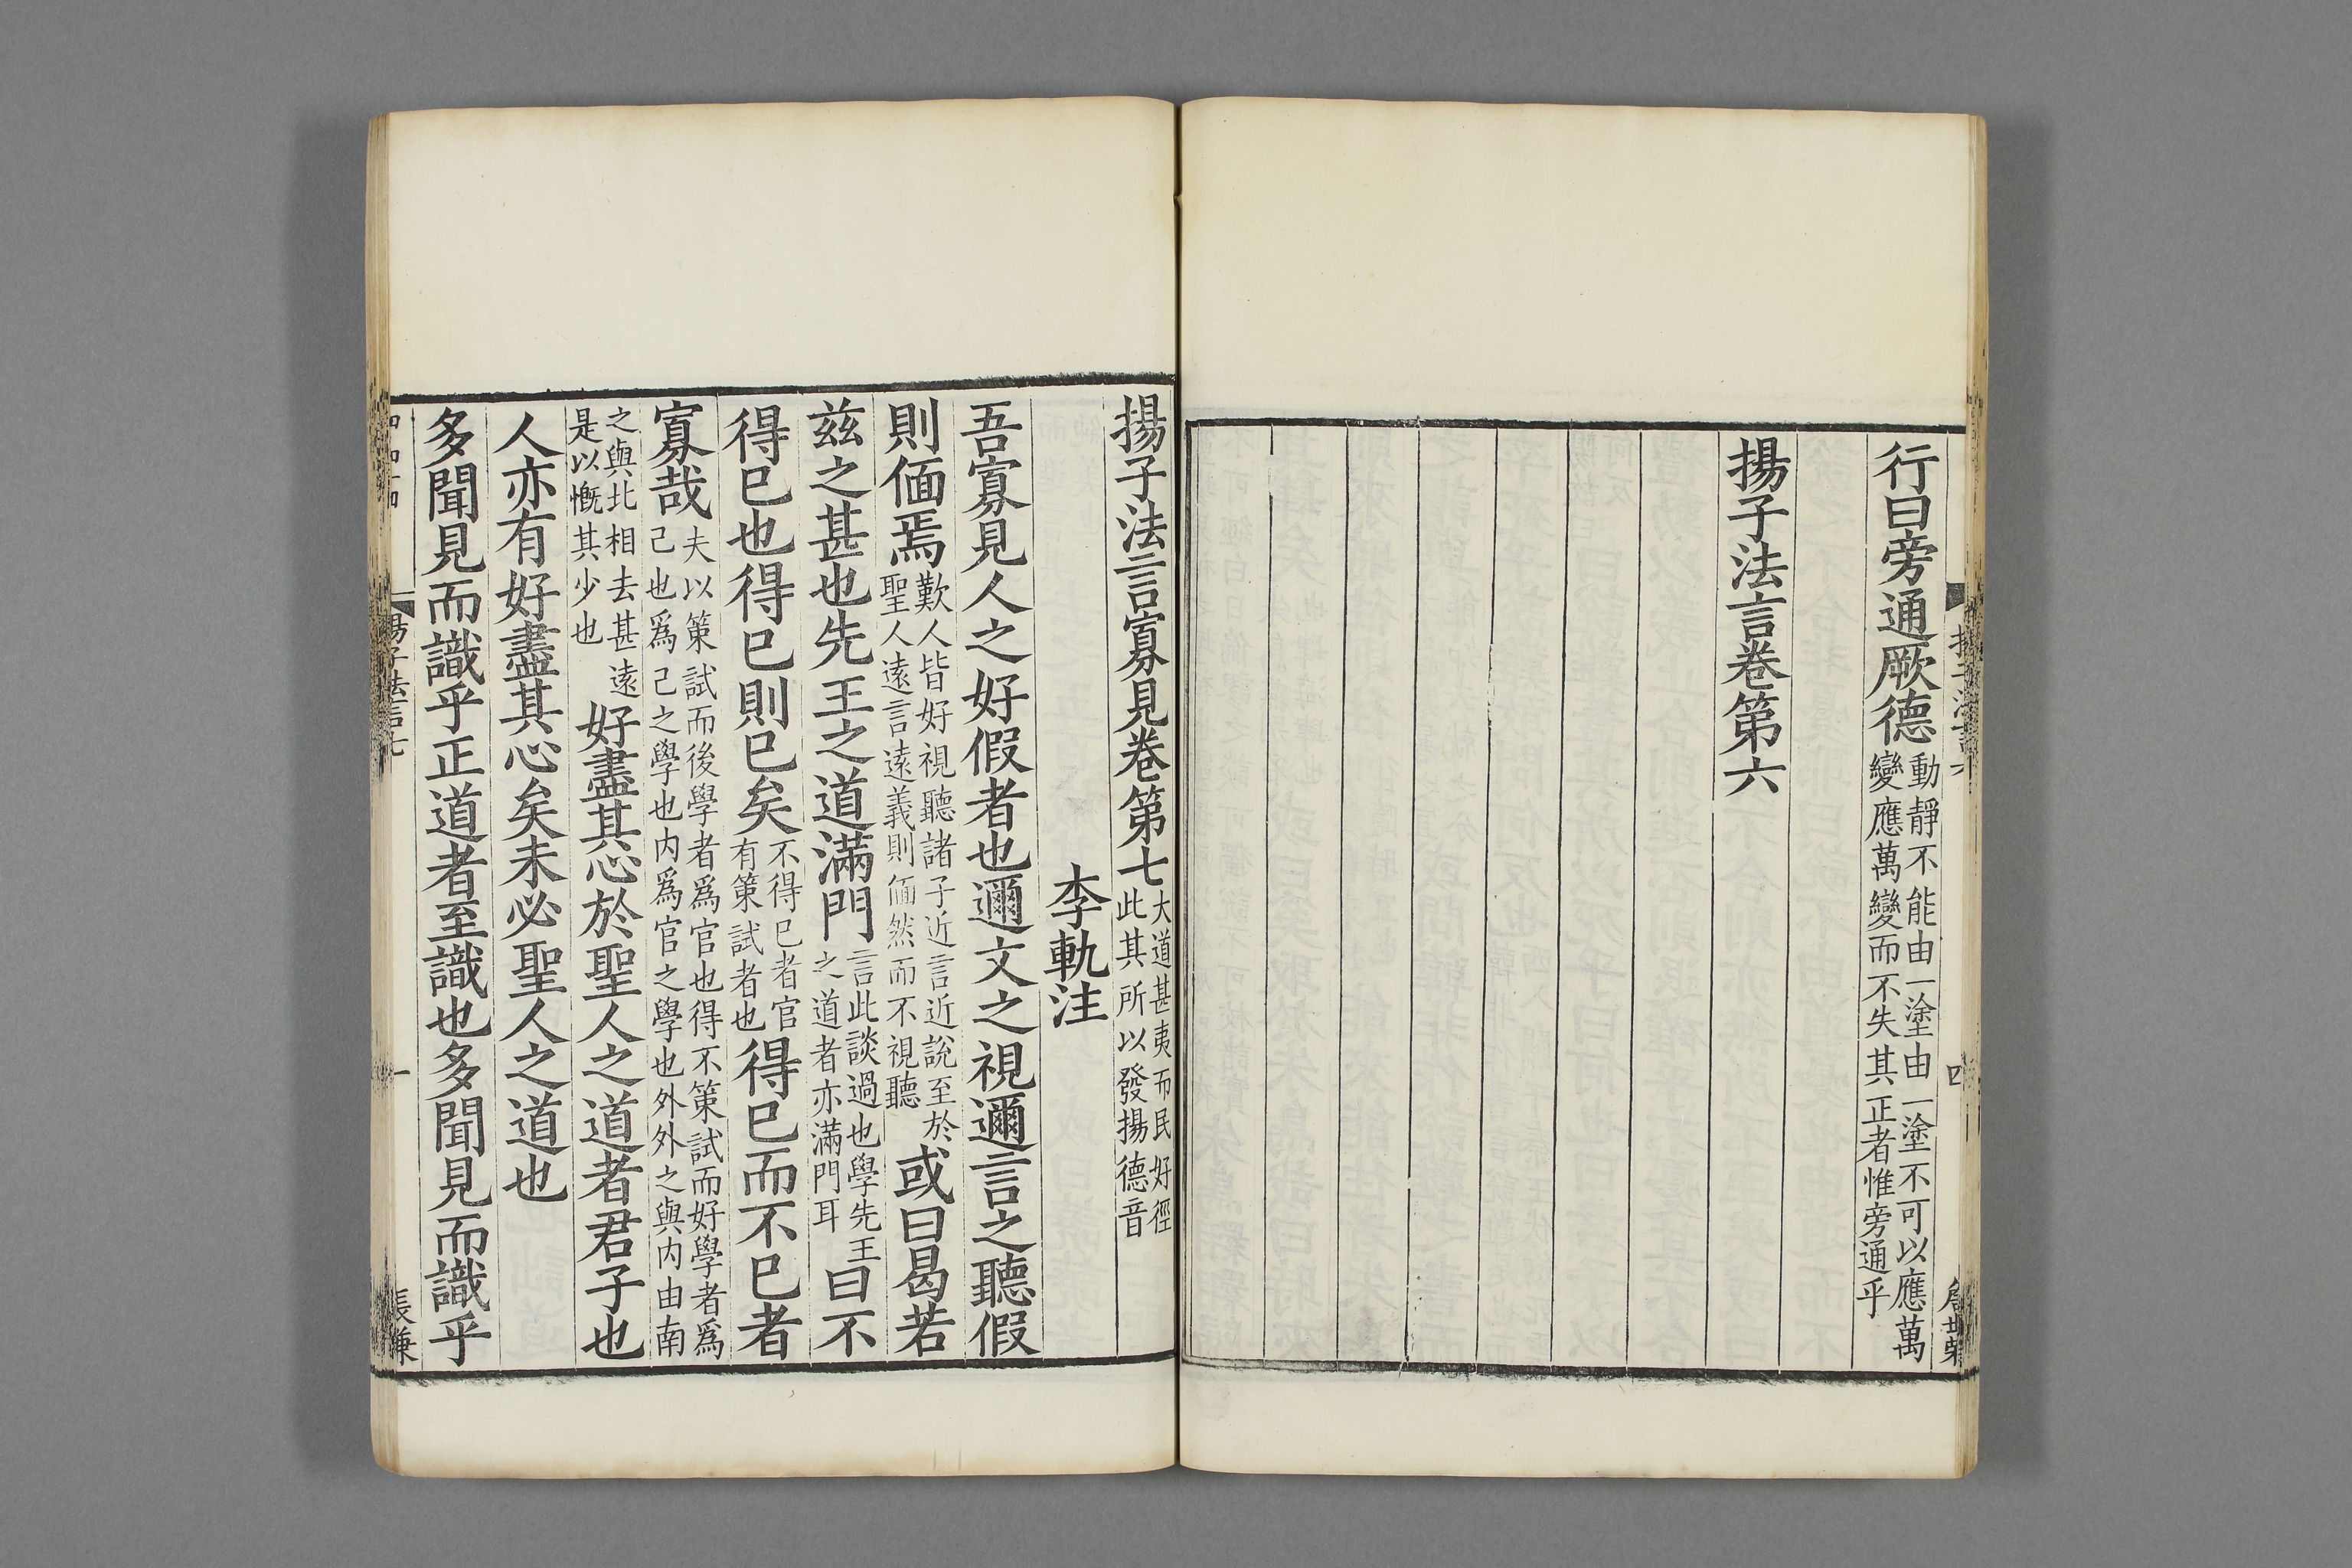 行曰旁通厥德動靜不能由一塗由一塗不可以應萬
變應萬變而不失其正者惟旁通乎
揚子法言卷第六
四
揚子法言寡見卷第七大道甚夷而民好徑
此其所以發揚德音
李軌注
吾寡見人之好假者也邇文之視邇言之聽假
則偭焉歎人皆好視聽諸子近言近說至於
聖人遠言遠義則偭然而不視聽或曰曷若
茲之甚也先王之道滿門言此談過也學先王
之道者亦滿門耳曰不
得已也得已則已矣不得已者官
有策試者也得已而不已者
寡哉夫以策試而後學者為官也得不策試而好學者爲
己也爲己之學也内爲官之學也外外之與内由南
之與北相去甚遠
是以慨其少也好盡其心於聖人之道者君子也
人亦有好盡其心矣未必聖人之道也
多聞見而識乎正道者至識也多聞見而識乎
揚子法言七
一